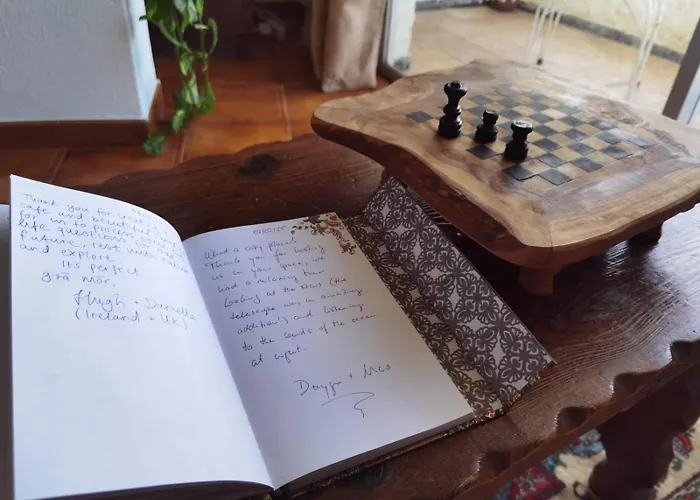 Thank you for creating
safe and beautiful
for us to process some
life questions for
future, rest with
and explore.
Its perfect
grá mór.
Hugh + Danielle
(Ireland + UK)
What a cosy place!
Thank you for hosting
us in your space, we
had a relaxing time
looking at the stars (the
telescope was an amazing
addition!) and listening
to the sounds of the ocean
at night.